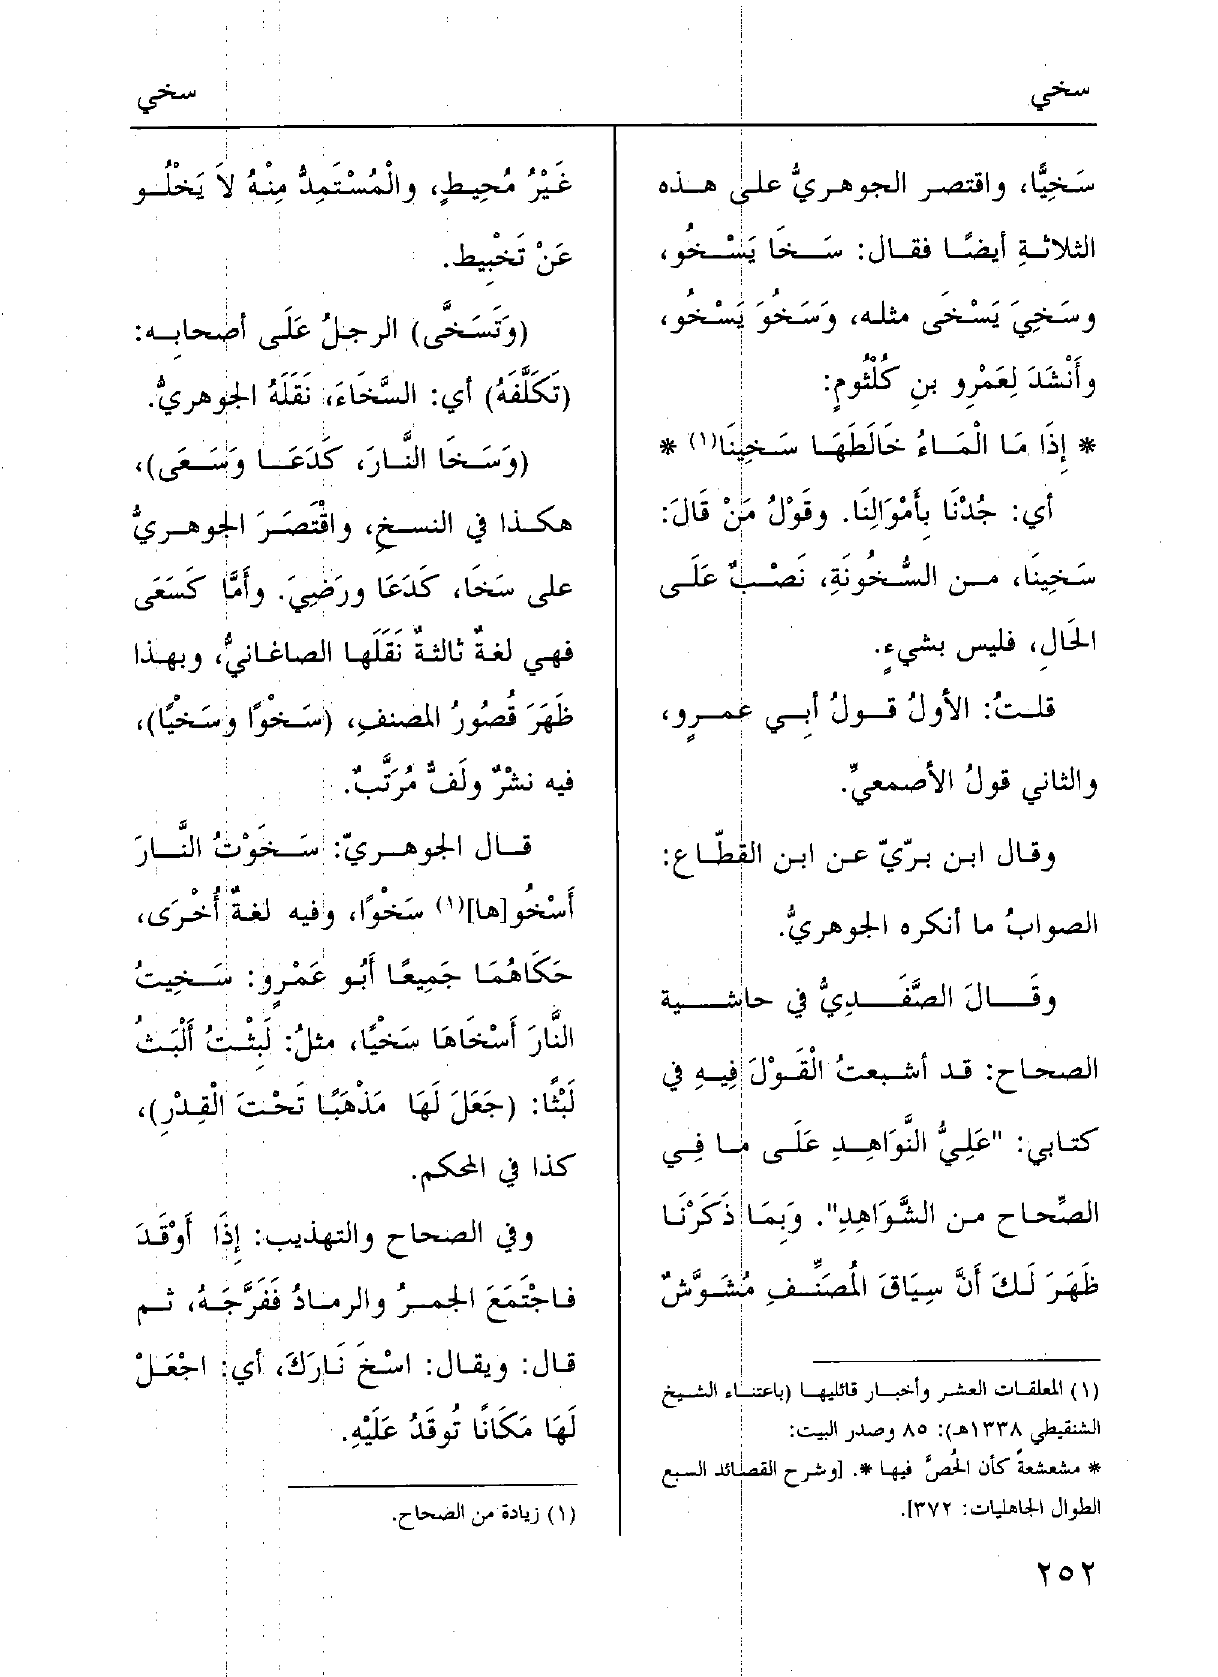 سخي
سخي
سَخِيًّا، واقتصر الجوهريُّ على هذه
الثلاثةِ أيضًا فقال: سَخَا يَسْخُو،
وسَخِيَ يَسْخَى مثله، وَسَخُوَ يَسْخُو،
وأَنْشَدَ لِعَمْرِو بنِ كُلْثُومٍ:
* إِذَا مَا الْمَاءُ خَالَطَهَا سَخِينَا(١) *
أي: جُدْنَا بِأَمْوَالِنَا. وقَوْلُ مَنْ قَالَ:
سَخِينَا، مِن السُّخُونَةِ، نَصْبٌ عَلَى
الحَالِ، فليس بشيءٍ.
قلتُ: الأولُ قولُ أبي عمرٍو،
والثاني قولُ الأصمعيِّ.
وقال ابن برّيّ عن ابن القطّاع:
الصوابُ ما أنكره الجوهريُّ.
وقَالَ الصَّفَدِيُّ في حاشية
الصحاح: قد أشبعتُ الْقَوْلَ فِيهِ في
كتابي: "عَلِيُّ النَّوَاهِدِ عَلَى مَا فِي
الصِّحَاحِ من الشَّوَاهِدِ". وَبِمَا ذَكَرْنَا
ظَهَرَ لَكَ أَنَّ سِيَاقَ المُصَنِّفِ مُشَوَّشٌ
(١) المعلقات العشر وأخبار قائليها (باعتناء الشيخ
الشنقيطي ١٣٣٨هـ): ٨٥ وصدر البيت:
* مشعشعةً كأن الحُصَّ فيها *. [وشرح القصائد السبع
الطوال الجاهليات: ٣٧٢].
غَيْرُ مُحِيطٍ، والْمُسْتَمِدُّ مِنْهُ لاَ يَخْلُو
عَنْ تَخْبِيط.
(وَتَسَخَّى) الرجلُ عَلَى أصْحابِه:
(تَكَلَّفَهُ) أي: السَّخَاءَ، نَقَلَهُ الجوهريُّ.
(وَسَخا النَّارَ، كَدَعَا وَسَعَى)،
هكذا في النسخِ، واقْتَصَرَ الجوهريُّ
على سَخَا، كَدَعَا ورَضِيَ. وأمَّا كَسَعَى
فهي لغةٌ ثالثةٌ نَقَلَها الصاغانيُّ، وبهذا
ظَهَرَ قُصُورُ المصنفِ، (سَخْوًا وسَخْيًا)،
فيه نشْرٌ ولَفٌّ مُرَتَّبٌ.
قال الجوهريّ: سَخَوْتُ النَّارَ
أَسْخُو[ها](١) سَخْوًا، وفيه لغةٌ أُخْرَى،
حَكَاهُمَا جَمِيعًا أَبُو عَمْرٍو: سَخِيتُ
النَّارَ أَسْخَاهَا سَخْيًا، مثلُ: لَبِثْتُ أَلْبَثُ
لَبْثًا: (جَعَلَ لَهَا مَذْهَبًا تَحْتَ الْقِدْرِ)،
كذا في المحكم.
وفي الصحاح والتهذيب: إِذَا أَوْقَدَ
فاجْتَمَعَ الجمرُ والرمادُ فَفَرَّجَهُ، ثم
قال: ويقال: اسْخَ نَارَكَ، أي: اجْعَلْ
لَهَا مَكَانًا تُوقَدُ عَلَيْهِ.
(١) زيادة من الصحاح.
٢٥٢